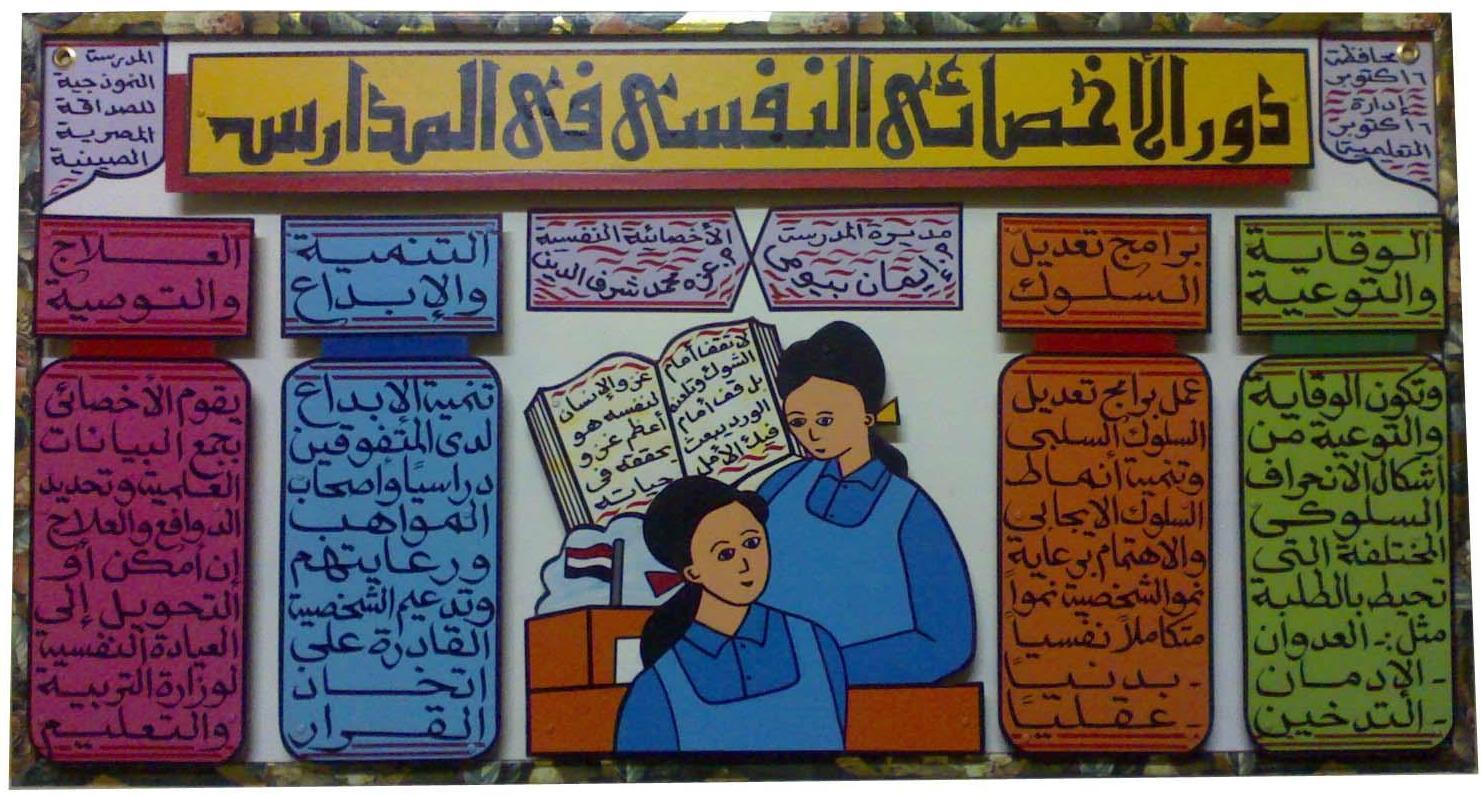 محافظة
٦ اكتوبر
إدارة
٦ اكتوبر
التعليمية
دور الأخصائى النفسى فى المدارس
المدرسة
النموذجية
للصداقة
المصرية
الصينية
الوقاية
والتوعية
وتكون الوقاية
والتوعية من
أشكال الانحراف
السلوكى
المختلفة التى
تحيط بالطلبة
مثل :- العدوان
- الإدمان
- التدخين
برامج تعديل
السلوك
عمل برامج تعديل
السلوك السلبى
وتنمية أنماط
السلوك الايجابى
والاهتمام برعاية
نمو الشخصية نمواً
متكاملاً نفسياً
- بدنياً
- عقلياً
مديرة المدرسة
أ/ إيمان بيومى
الأخصائية النفسية
أ/ عزه محمد شرف الدين
لا تقف أمام
الشوك وتلعنه
بل قف أمام
الورد يبعث
فيك الأمل
عز والإنسان
لنفسه هو
أعظم عز و
يحققه فى
حياته
التنمية
والإبداع
تنمية الإبداع
لدى المتفوقين
دراسياً وأصحاب
المواهب
ورعايتهم
وتدعيم الشخصية
القادرة على
اتخاذ
القرار
العلاج
والتوصية
يقوم الأخصائى
بجمع البيانات
العلمية وتحديد
الدوافع والعلاج
إن أمكن أو
التحويل إلى
العيادة النفسية
لوزارة التربية
والتعليم